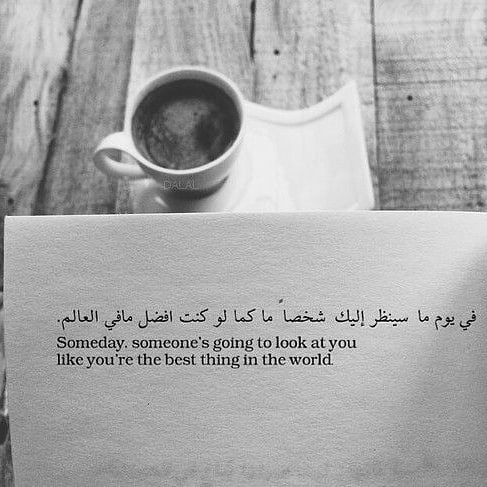 DALAL
في يوم ما سينظر إليك شخصاً ما كما لو كنت افضل مافي العالم.
Someday, someone's going to look at you
like you're the best thing in the world.